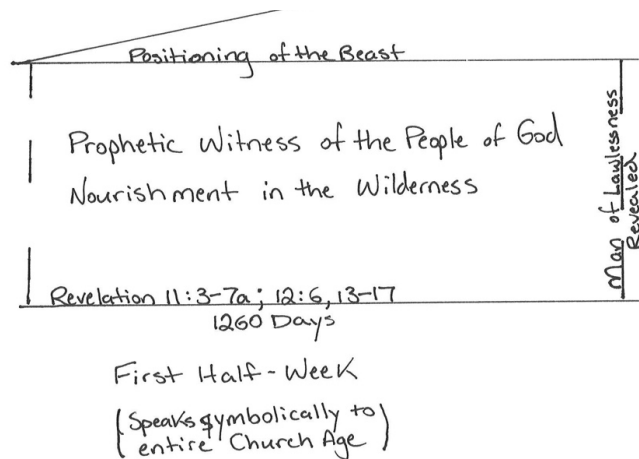 Positioning of the Beast
Prophetic Witness of the People of God
Nourishment in the Wilderness
Man of Lawlessness
Revealed
Revelation 11:3-7a; 12:6, 13-17
1260 Days
First Half-Week
(Speaks symbolically to
entire Church Age)